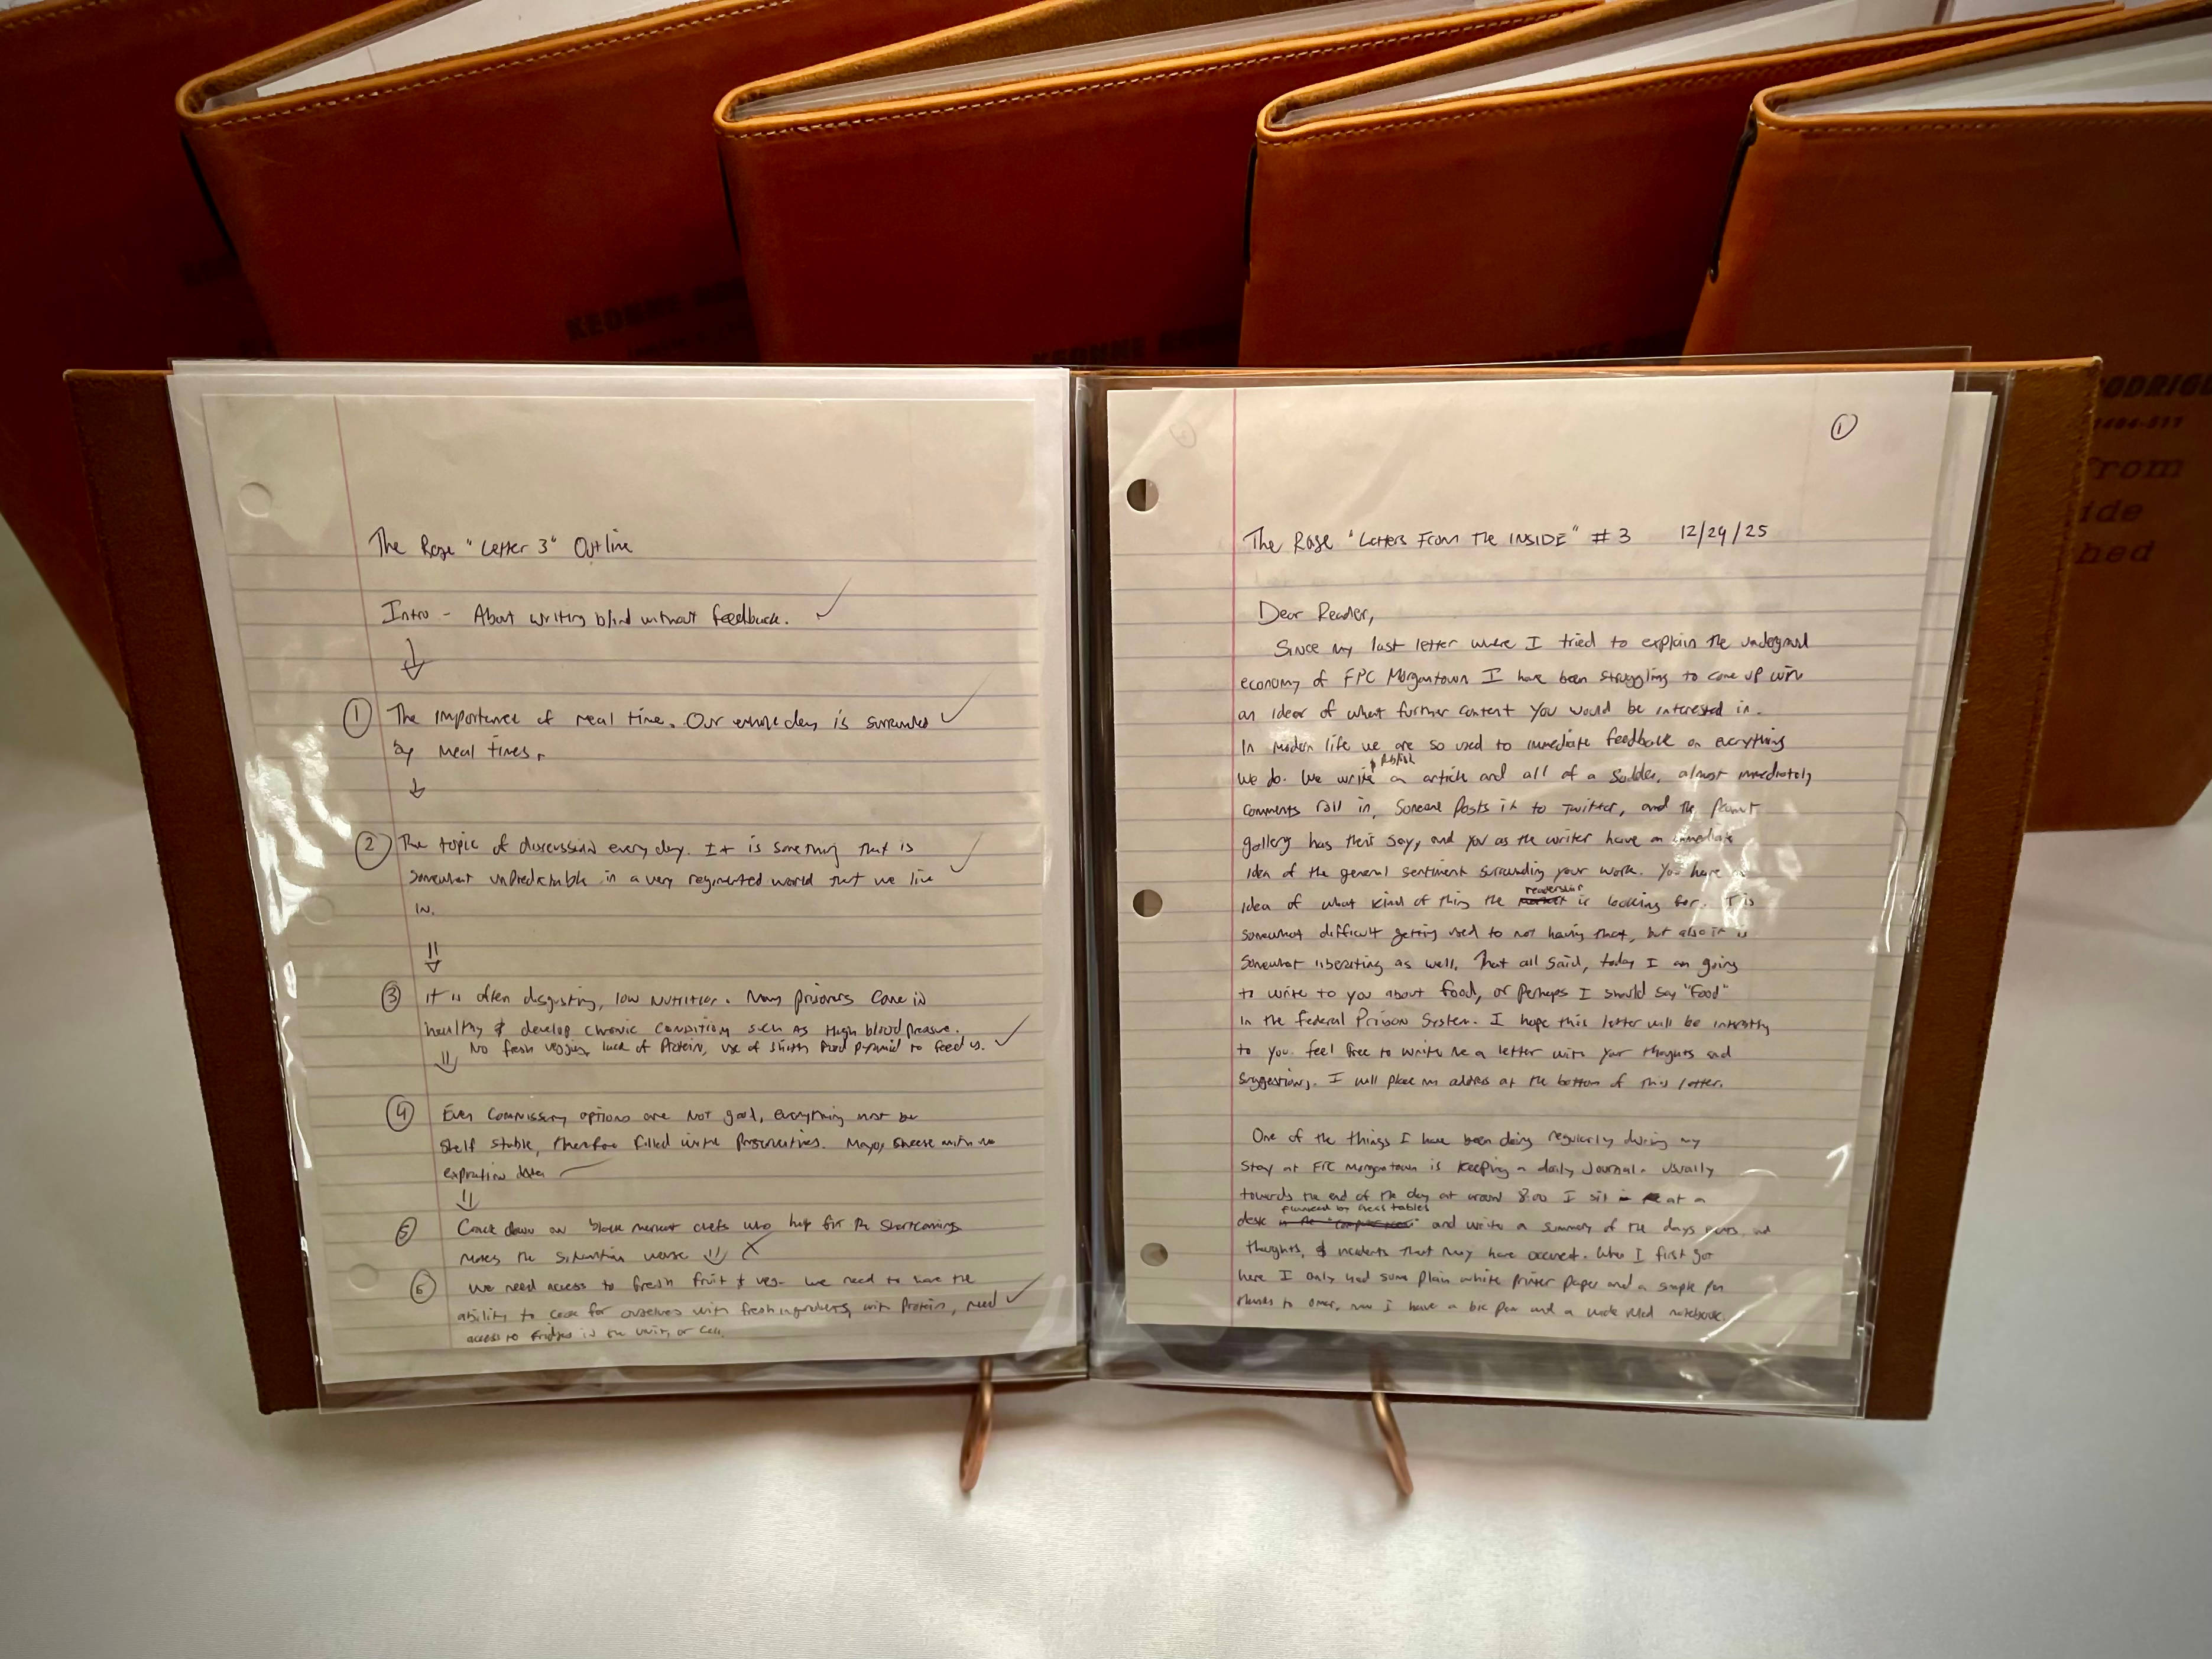 KEONNE
KEONNE
KEONNE
RODRIG
from
ide
hed
The Rage "Letter 3" Outline
Intro - About writing blind without feedback. ✓
↓
① The importance of meal time. Our whole day is surrounded ✓
by meal times.
↓
② The topic of discussion every day. It is something that is ✓
somewhat unpredictable in a very regimented world that we live
in.
⇓
③ it is often disgusting, low nutrition. Many prisoners come in
healthy & develop chronic condition such as High blood pressure.
No fresh veggies, lack of Protein, use of food pyramid to feed us. ✓
⇓
④ Even Commissary options are not good, everything must be
shelf stable, therefore filled with preservatives. Mayo, cheese with no
expiration date
⇓
⑤ Crack down on black market chefs who help fix the shortcomings
makes the situation worse ⇓ X
⑥ We need access to fresh fruit & veg - we need to have the
ability to cook for ourselves with fresh ingredients, with protein, need ✓
access to fridges in the unit, or cell.
①
The Rage "Letters From The INSIDE" #3 12/24/25
Dear Reader,
Since my last letter where I tried to explain the underground
economy of FPC Morgantown I have been struggling to come up with
an idea of what further content you would be interested in.
In modern life we are so used to immediate feedback on everything
& publish
we do. We write an article and all of a sudden, almost immediately
comments roll in, Someone posts it to Twitter, and the peanut
gallery has their say, and you as the writer have an immediate
idea of the general sentiment surrounding your work. You have
readership
idea of what kind of thing the market is looking for. It is
somewhat difficult getting used to not having that, but also it is
somewhat liberating as well. That all said, today I am going
to write to you about food, or perhaps I should say "Food"
in the Federal Prison System. I hope this letter will be interesting
to you. feel free to write me a letter with your thoughts and
suggestions. I will place my address at the bottom of this letter.
One of the things I have been doing regularly during my
stay at FPC Morgantown is keeping a daily journal. Usually
towards the end of the day at around 8:00 I sit at a
flanked by tables
desk in the and write a summary of the days
thoughts, & incidents that may have occured. When I first got
here I only had some plain white printer paper and a simple pen
thanks to now I have a bic pen and a wide ruled notebook.